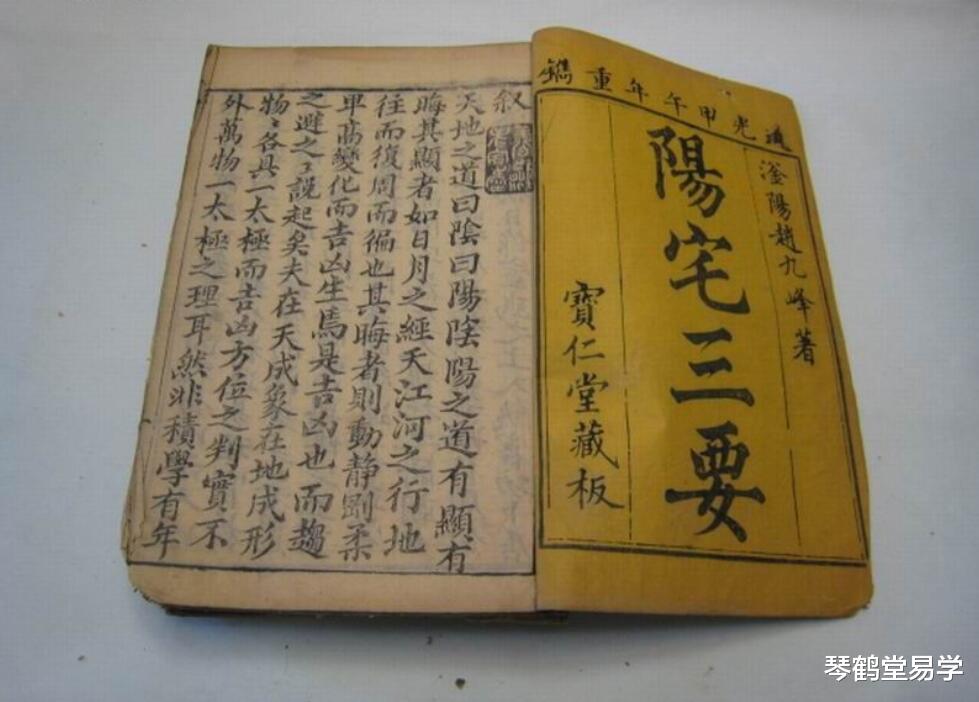 道光甲午年重鐫
滏陽趙九峰著
陽宅三要
寶仁堂藏板
叙
天地之道曰陰曰陽陰陽之道有顯有
晦其顯者如日月之經天江河之行地
往而復周而徧也其晦者則動靜剛柔
卑高變化而吉凶生焉是吉凶也而趨
之避之〻說起矣夫在天成象在地成形
物〻各具一太極而吉凶方位之判實不
外萬物一太極之理耳然非積學有年
琴鹤堂易学